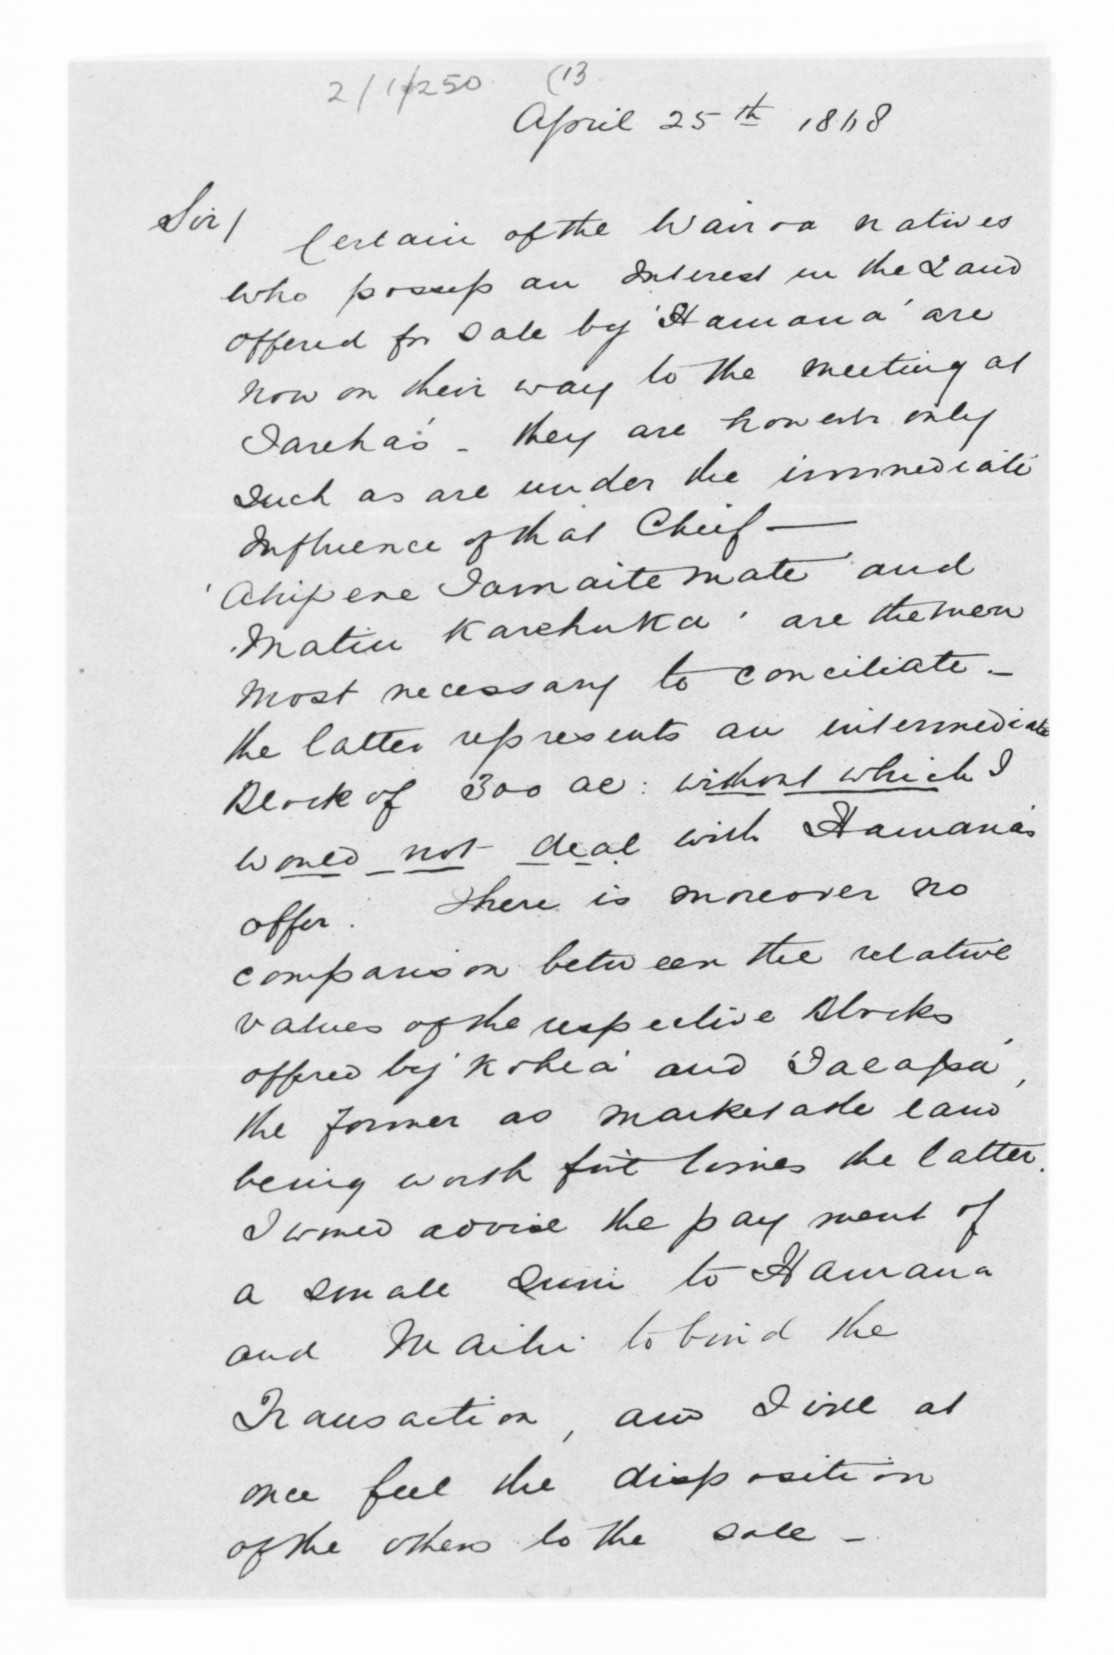 2/1/250 (13
April 25th 1868
Sir/ Certain of the Wairoa natives
who possess an Interest in the Land
offered for sale by 'Hamana' are
now on their way to the meeting at
Tareha's - they are however only
such as are under the immediate
Influence of that Chief —
'Ahipene Tamaitemate' and
'Matiu Karehuka' are the men
most necessary to conciliate -
the latter represents an intermediate
Block of 300 ac: without which I
would not deal with Hamana's
offer. There is moreover no
comparison between the relative
values of the respective Blocks
offered by 'Kohea' and
the former as marketable land
being worth five times the latter.
I would advise the payment of
a small sum to Hamana
and Maihi to bind the
Transaction, and I will at
once feel the disposition
of the others to the sale -